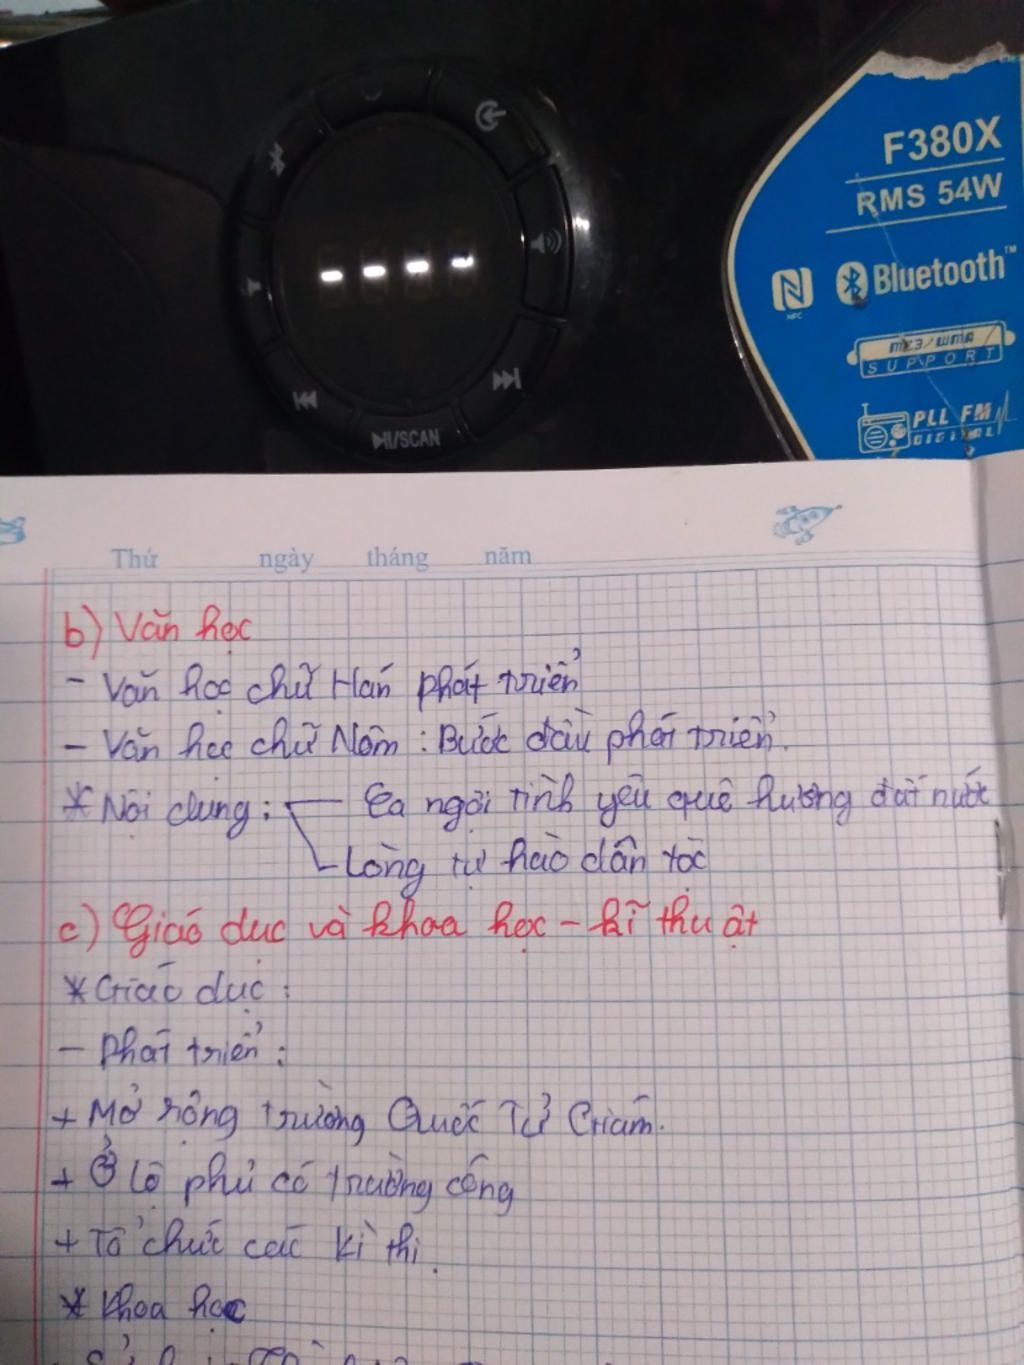 F380X
RMS 54W
NFC
Bluetooth™
MP3/WMA
SUPPORT
PLL FM
DIGITAL
▶II/SCAN
Thứ ngày tháng năm
b) Văn học
- Văn học chữ Hán phát triển
- Văn học chữ Nôm : Bước đầu phát triển.
* Nội dung : Ca ngợi tình yêu quê hương đất nước
Lòng tự hào dân tộc
c) Giáo dục và khoa học - kĩ thuật
* Giáo dục :
- Phát triển :
+ Mở rộng trường Quốc Tử Giám.
+ Ở lộ phủ có trường công
+ Tổ chức các kì thi.
* Khoa học